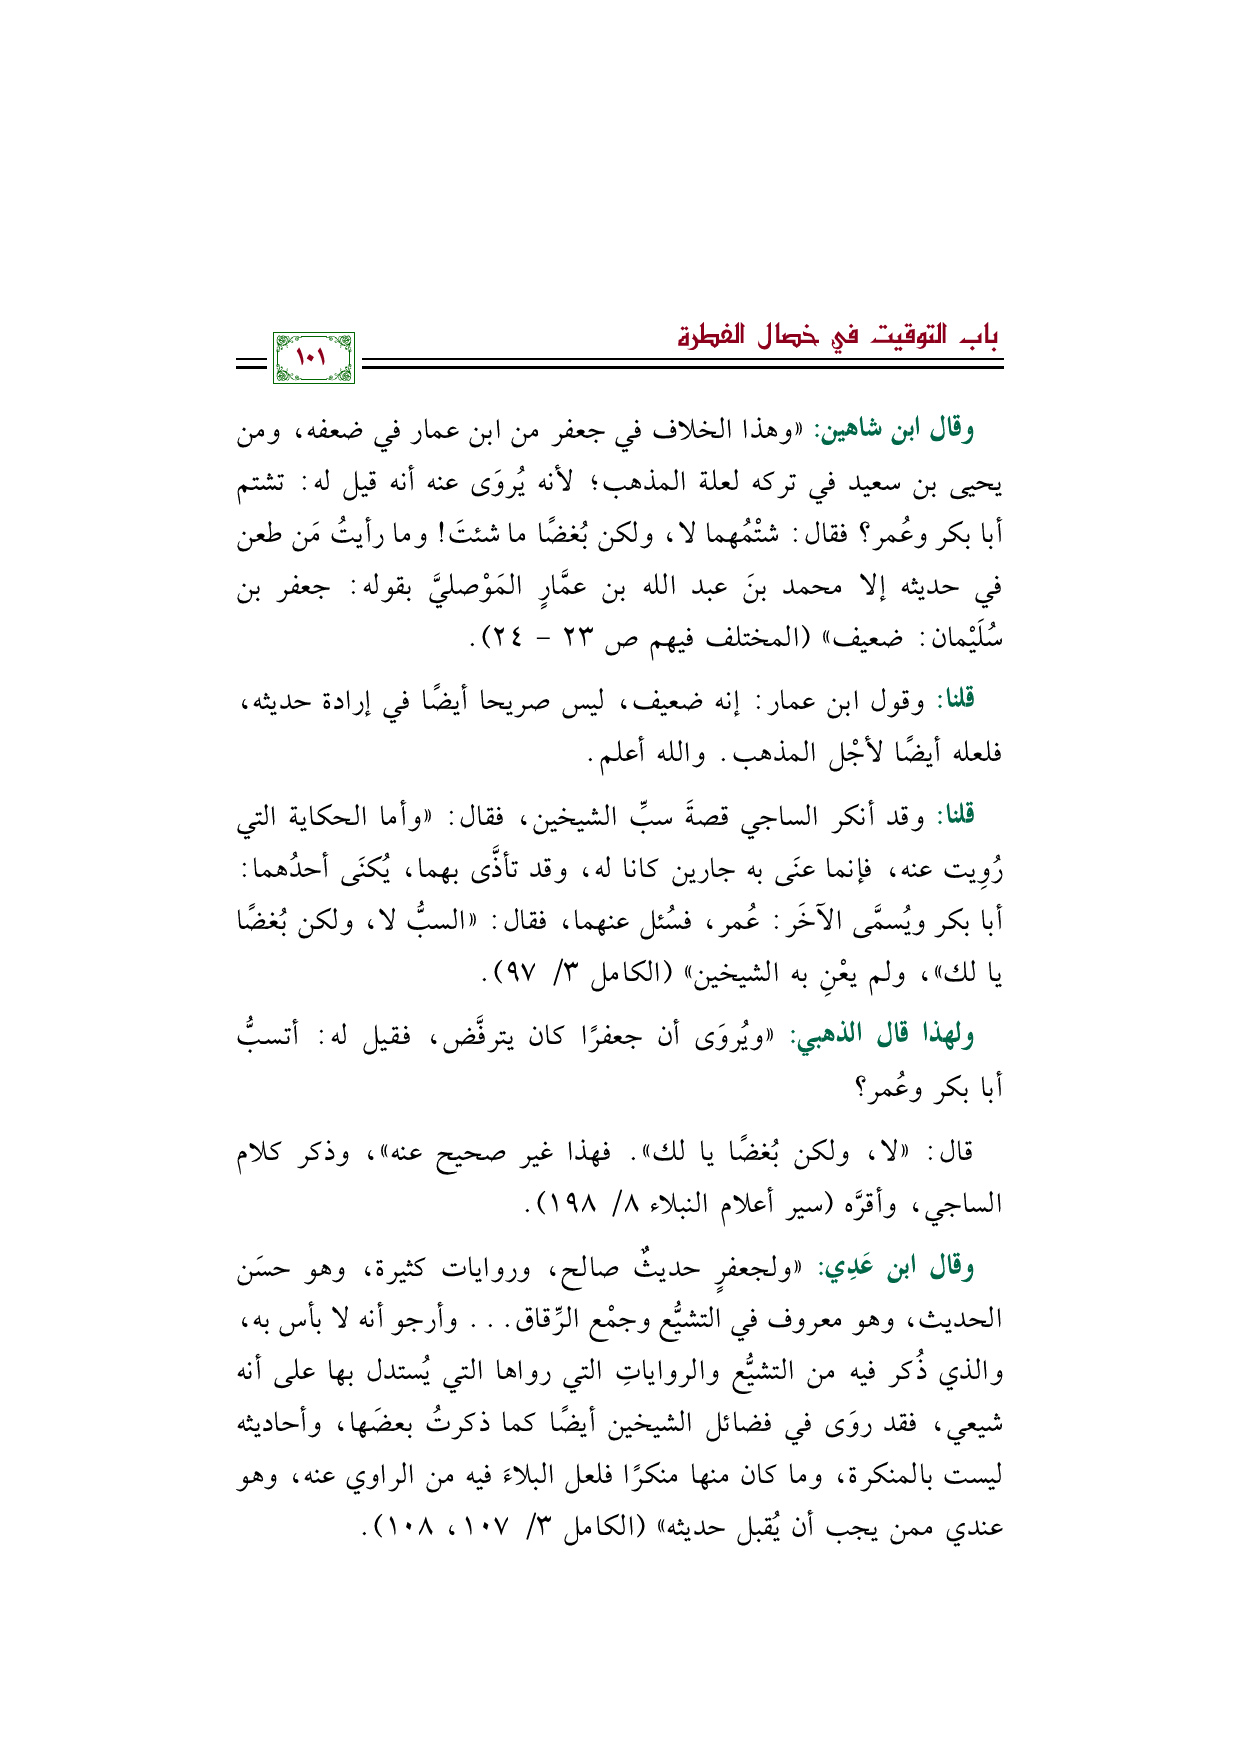 باب التوقيت في خصال الفطرة
١٠١
وقال ابن شاهين: «وهذا الخلاف في جعفر من ابن عمار في ضعفه، ومن
يحيى بن سعيد في تركه لعلة المذهب؛ لأنه يُروَى عنه أنه قيل له: تشتم
أبا بكر وعُمر؟ فقال: شتْمُهما لا، ولكن بُغضًا ما شئتَ! وما رأيتُ مَن طعن
في حديثه إلا محمد بنَ عبد الله بن عمَّارٍ المَوْصليَّ بقوله: جعفر بن
سُلَيْمان: ضعيف» (المختلف فيهم ص ٢٣ – ٢٤).
قلنا: وقول ابن عمار: إنه ضعيف، ليس صريحا أيضًا في إرادة حديثه،
فلعله أيضًا لأجْل المذهب. والله أعلم.
قلنا: وقد أنكر الساجي قصةَ سبِّ الشيخين، فقال: «وأما الحكاية التي
رُوِيت عنه، فإنما عنَى به جارين كانا له، وقد تأذَّى بهما، يُكنَى أحدُهما:
أبا بكر ويُسمَّى الآخَر: عُمر، فسُئل عنهما، فقال: «السبُّ لا، ولكن بُغضًا
يا لك»، ولم يعْنِ به الشيخين» (الكامل ٣/ ٩٧).
ولهذا قال الذهبي: «ويُروَى أن جعفرًا كان يترفَّض، فقيل له: أتسبُّ
أبا بكر وعُمر؟
قال: «لا، ولكن بُغضًا يا لك». فهذا غير صحيح عنه»، وذكر كلام
الساجي، وأقرَّه (سير أعلام النبلاء ٨/ ١٩٨).
وقال ابن عَدِي: «ولجعفرٍ حديثٌ صالح، وروايات كثيرة، وهو حسَن
الحديث، وهو معروف في التشيُّع وجمْع الرِّقاق... وأرجو أنه لا بأس به،
والذي ذُكر فيه من التشيُّع والرواياتِ التي رواها التي يُستدل بها على أنه
شيعي، فقد روَى في فضائل الشيخين أيضًا كما ذكرتُ بعضَها، وأحاديثه
ليست بالمنكرة، وما كان منها منكرًا فلعل البلاءَ فيه من الراوي عنه، وهو
عندي ممن يجب أن يُقبل حديثه» (الكامل ٣/ ١٠٧، ١٠٨).